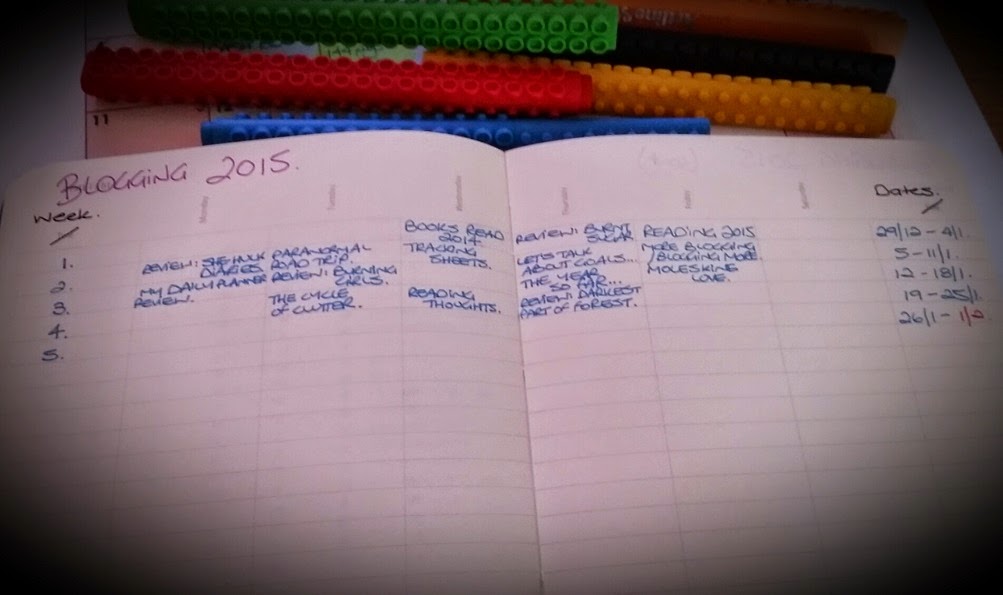 11
12
BLOGGING 2015.
Week.
Monday
Tuesday
Wednesday
Thursday
Friday
Saturday
Dates.
1.
BOOKS READ
2014
REVIEW: BURNT
SUGAR
READING 2015
29/12 - 4/1.
2.
REVIEW: SHE-HULK
DIARIES
PARANORMAL
ROAD TRIP.
TRACKING
SHEETS.
LET'S TALK
ABOUT GOALS...
MORE BLOGGING
/BLOGGING MORE.
5 - 11/1.
3.
MY DAILY PLANNER
REVIEW.
REVIEW: BURNING
GIRLS.
THE YEAR
SO FAR...
MOLESKINE
LOVE.
12 - 18/1.
4.
THE CYCLE
OF CLUTTER.
READING
THOUGHTS.
REVIEW: DARKEST
PART OF FOREST.
19 - 25/1
5.
26/1 - 1/2